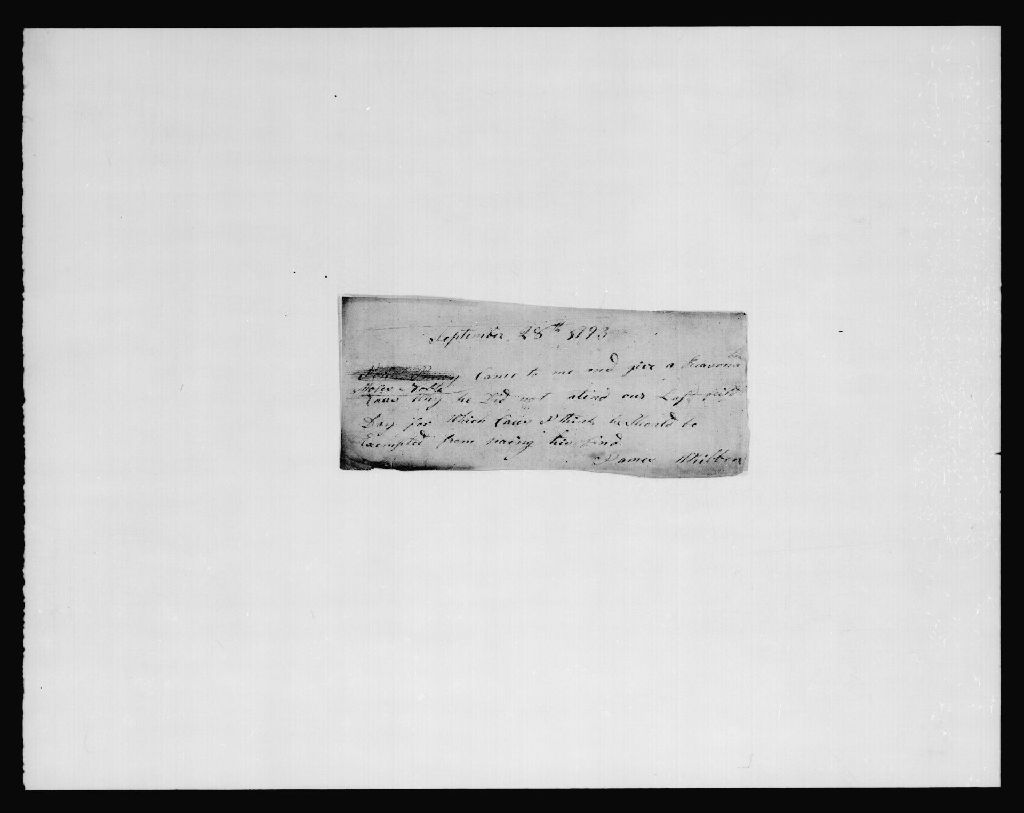 September 28th 1793
Came to me and give a Reasonable
Moses
Caus Why he Did not atend our Last
Day for Which Caus I think he Should be
Exempted from paeing his find
James